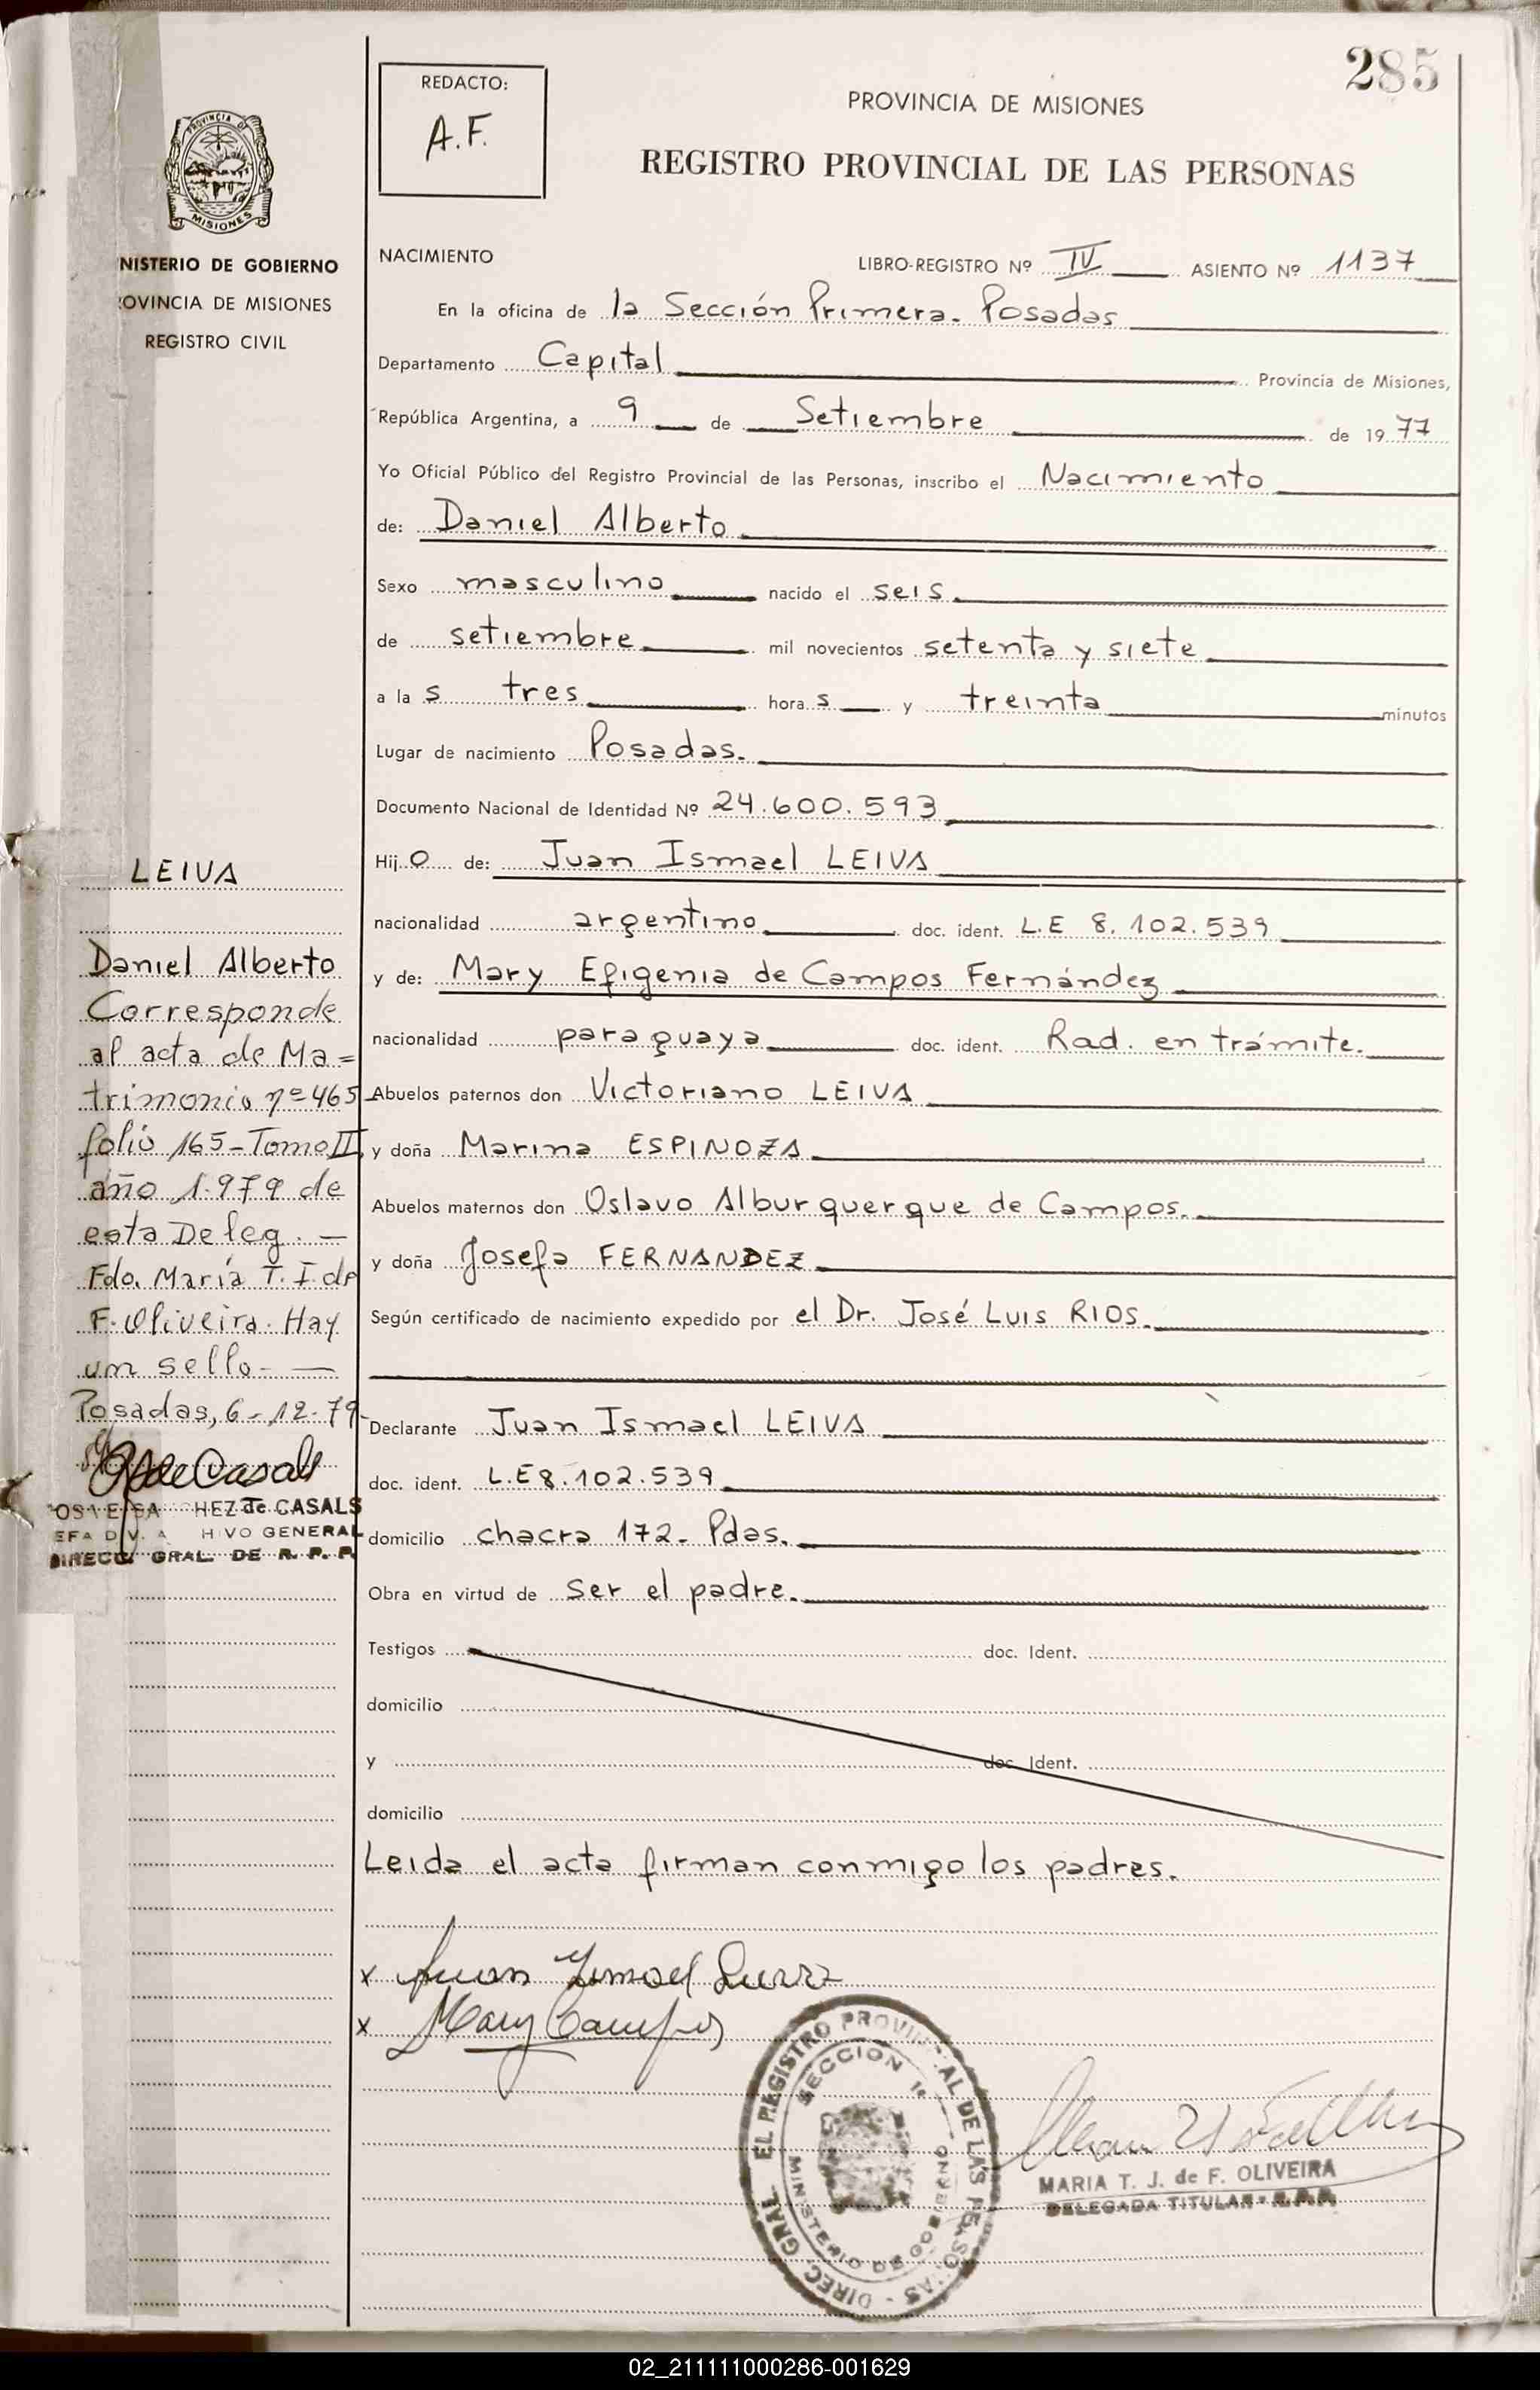 285
REDACTO:
A.F.
PROVINCIA DE MISIONES
REGISTRO PROVINCIAL DE LAS PERSONAS
PROVINCIA DE
MISIONES
NISTERIO DE GOBIERNO
OVINCIA DE MISIONES
REGISTRO CIVIL
NACIMIENTO
LIBRO-REGISTRO Nº IV ASIENTO Nº 1137
En la oficina de la Sección Primera. Posadas
Departamento Capital Provincia de Misiones,
República Argentina, a 9 de Setiembre de 1977
Yo Oficial Público del Registro Provincial de las Personas, inscribo el Nacimiento
de: Daniel Alberto
Sexo masculino nacido el seis.
de setiembre mil novecientos setenta y siete
a la s tres hora s y treinta minutos
Lugar de nacimiento Posadas.
Documento Nacional de Identidad Nº 24.600.593
Hij o de: Juan Ismael LEIVA
nacionalidad argentino doc. ident. L.E 8.102.539
y de: Mary Efigenia de Campos Fernández
nacionalidad paraguaya doc. ident. Rad. en trámite.
Abuelos paternos don Victoriano LEIVA
y doña Marina ESPINOZA
Abuelos maternos don Oslavo Alburquerque de Campos.
y doña Josefa FERNANDEZ
Según certificado de nacimiento expedido por el Dr. José Luis RIOS.
Declarante Juan Ismael LEIVA
doc. ident. L.E 8.102.539
domicilio chacra 172. Pdas.
Obra en virtud de ser el padre.
Testigos doc. Ident.
domicilio
y doc. Ident.
domicilio
Leida el acta firman conmigo los padres.
LEIVA
Daniel Alberto
Corresponde
al acta de Ma=
trimonio nº 465
folio 165-Tomo II
año 1.979 de
esta Deleg. —
Fdo. María T. I. de
F. Oliveira. Hay
un sello. —
Posadas, 6-12-79
de Casals
HEZ de CASALS
EFA DIV. A HIVO GENERAL
DIRECC. GRAL. DE R. P. P.
x Juan Ismael
x Mary Campos
DIREC. GRAL. EL REGISTRO PROVINCIAL DE LAS PERSONAS
SECCION 1ª
MINISTERIO DE GOBIERNO
MARIA T. J. de F. OLIVEIRA
DELEGADA TITULAR - R.P.P.
02_211111000286-001629